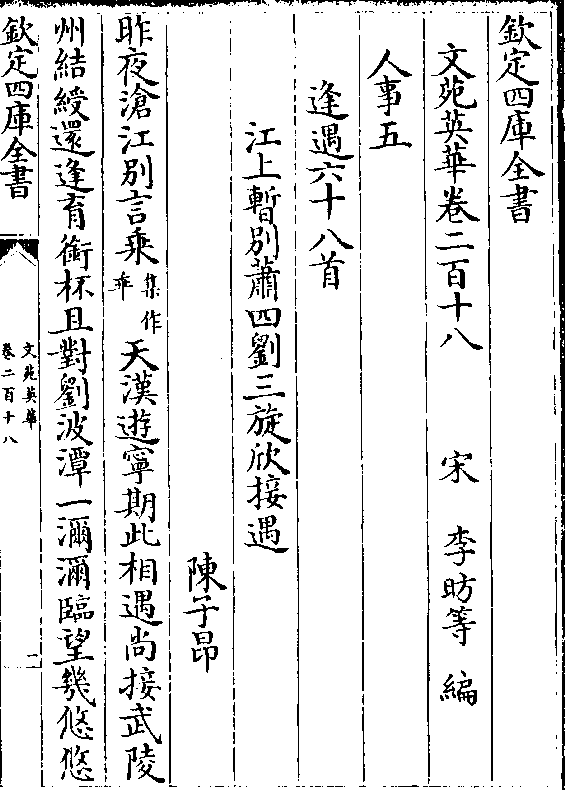 欽定四庫全書
文苑英華卷二百十八 宋 李昉等 編
人事五
逢遇六十八首
江上暫別蕭四劉三旋欣接遇
陳子昂
昨夜滄江別言乘集作乖天漢遊寧期此相遇尚接武陵
州結綬還逢育銜杯且對劉波潭一瀰瀰臨望幾悠悠
欽定四庫全書
文苑英華
卷二百十八
一